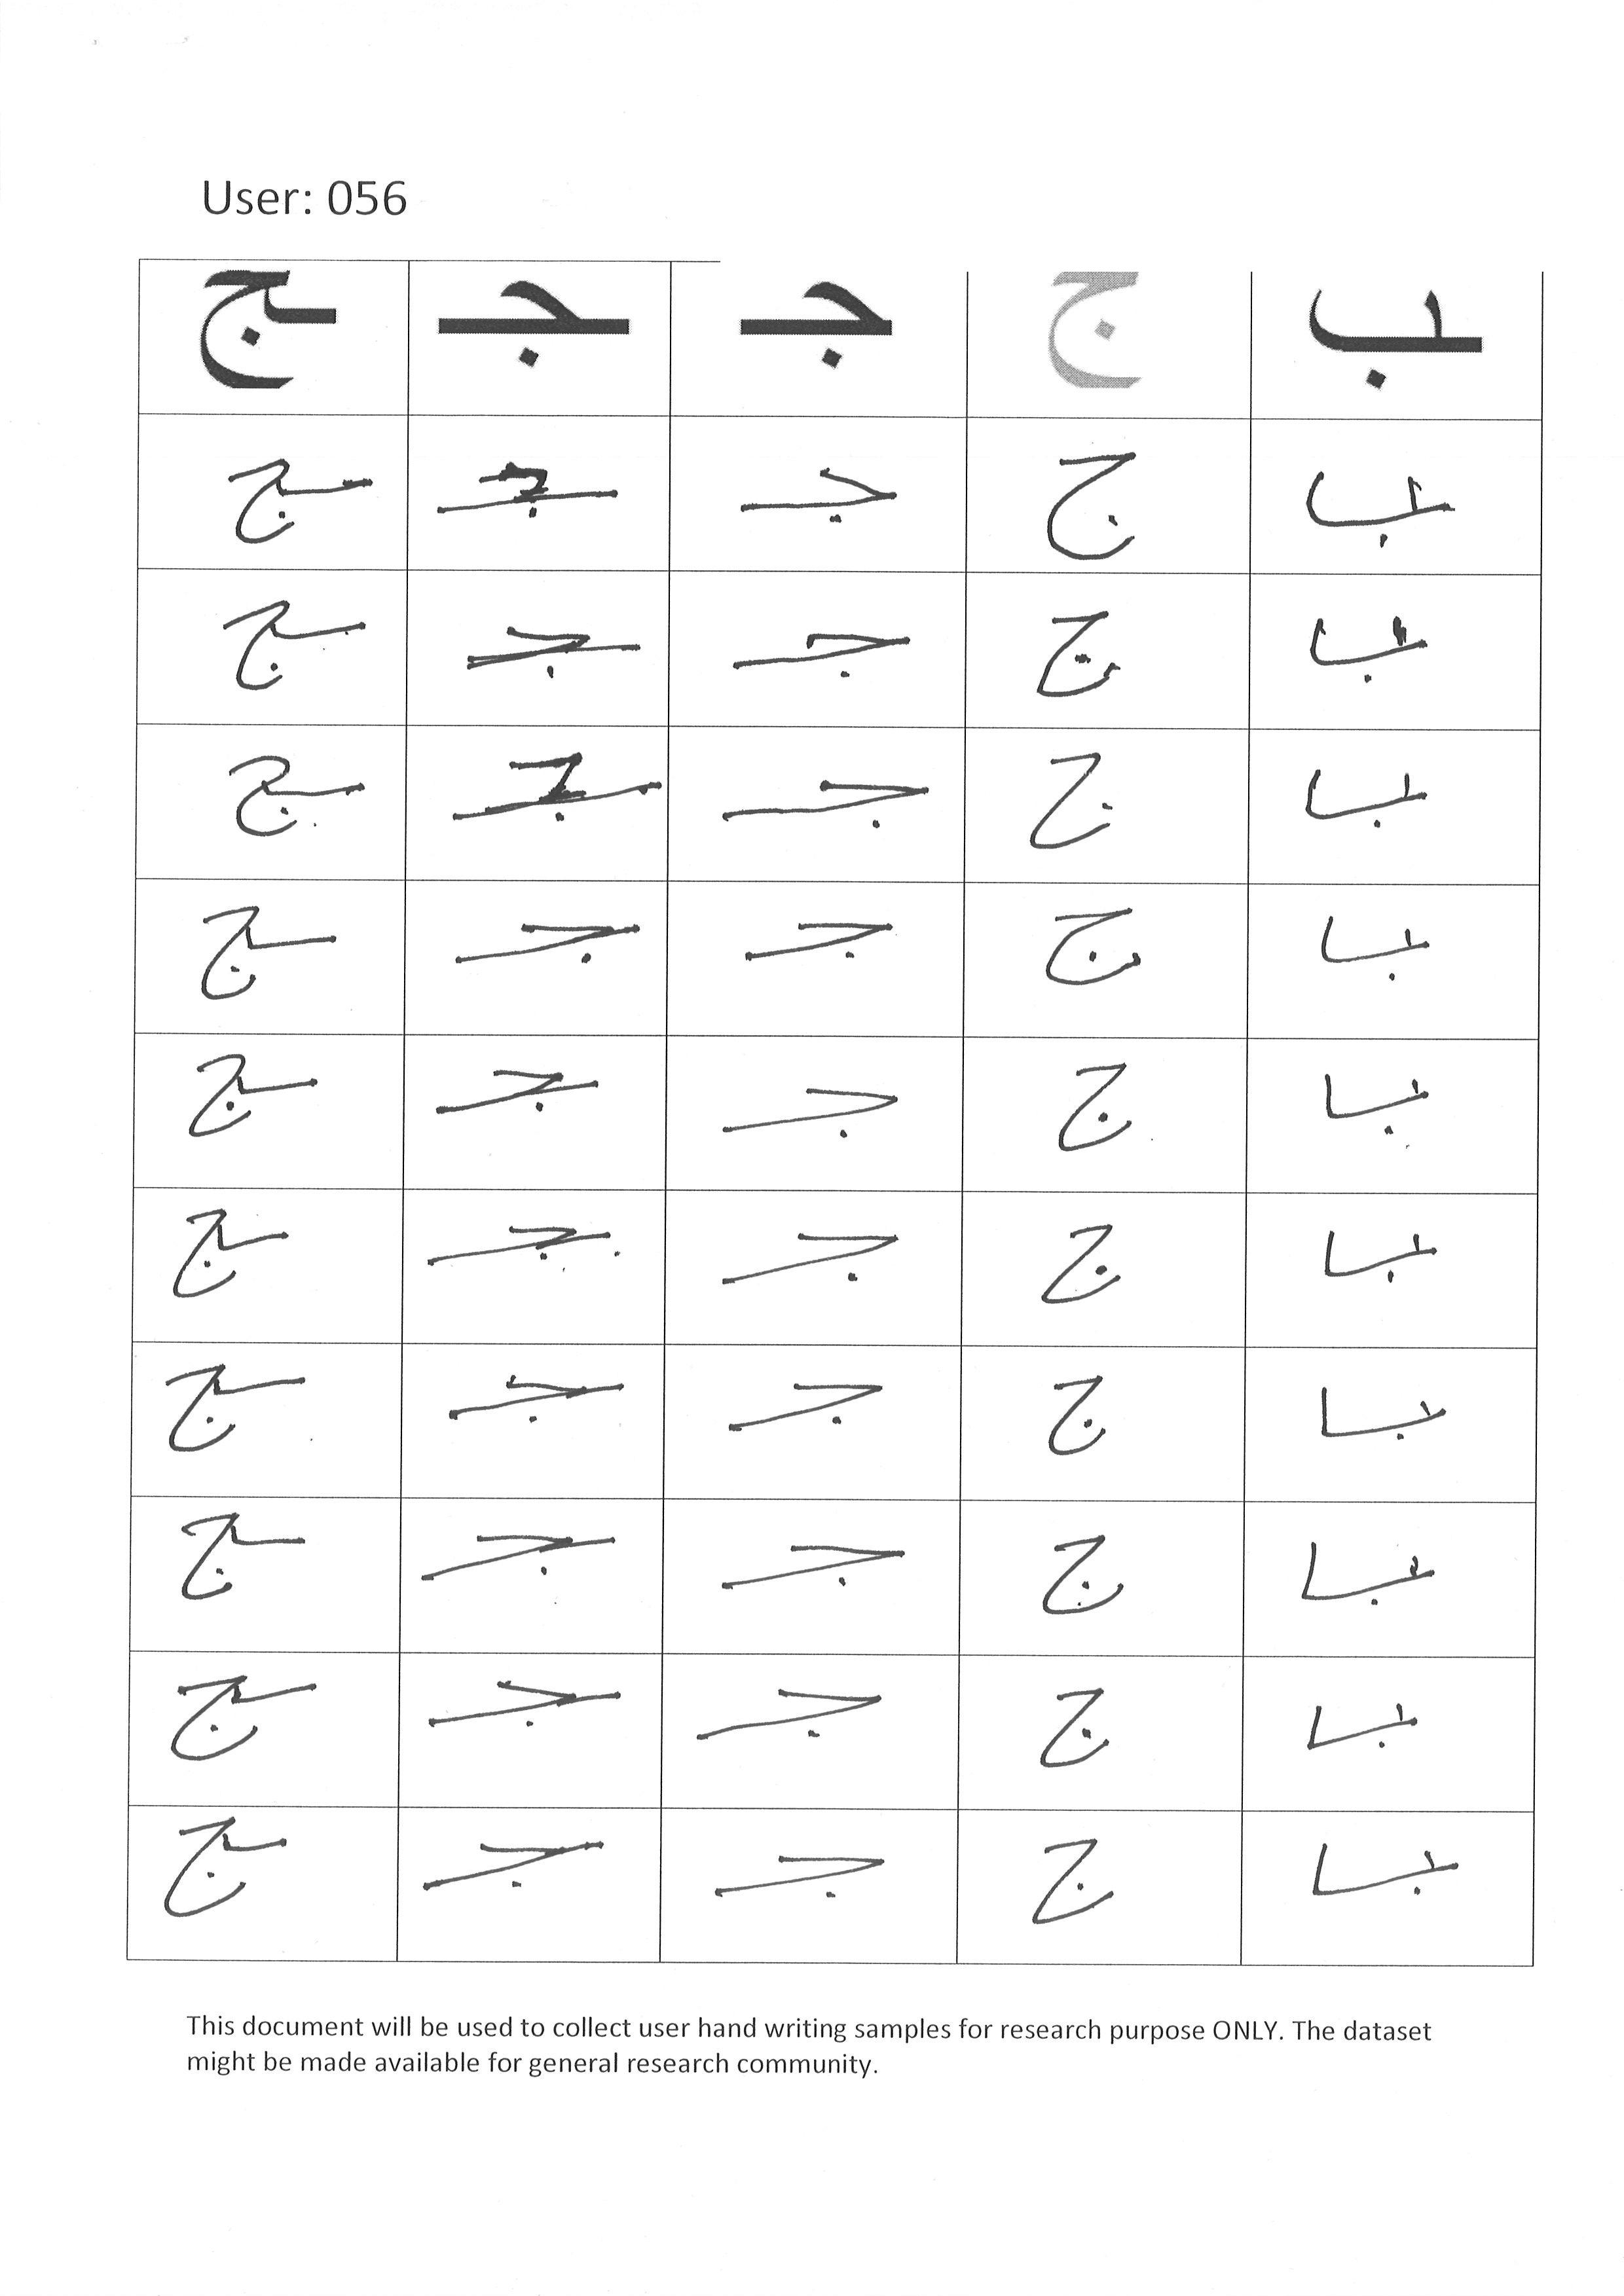 User: 056
ـب ج جـ ـجـ ـج
ـب ج جـ ـجـ ـج
ـب ج جـ ـجـ ـج
ـب ج جـ ـجـ ـج
ـب ج جـ ـجـ ـج
ـب ج جـ ـجـ ـج
ـب ج جـ ـجـ ـج
ـب ج جـ ـجـ ـج
ـب ج جـ ـجـ ـج
ـب ج جـ ـجـ ـج
ـب ج جـ ـجـ ـج
This document will be used to collect user hand writing samples for research purpose ONLY. The dataset
might be made available for general research community.